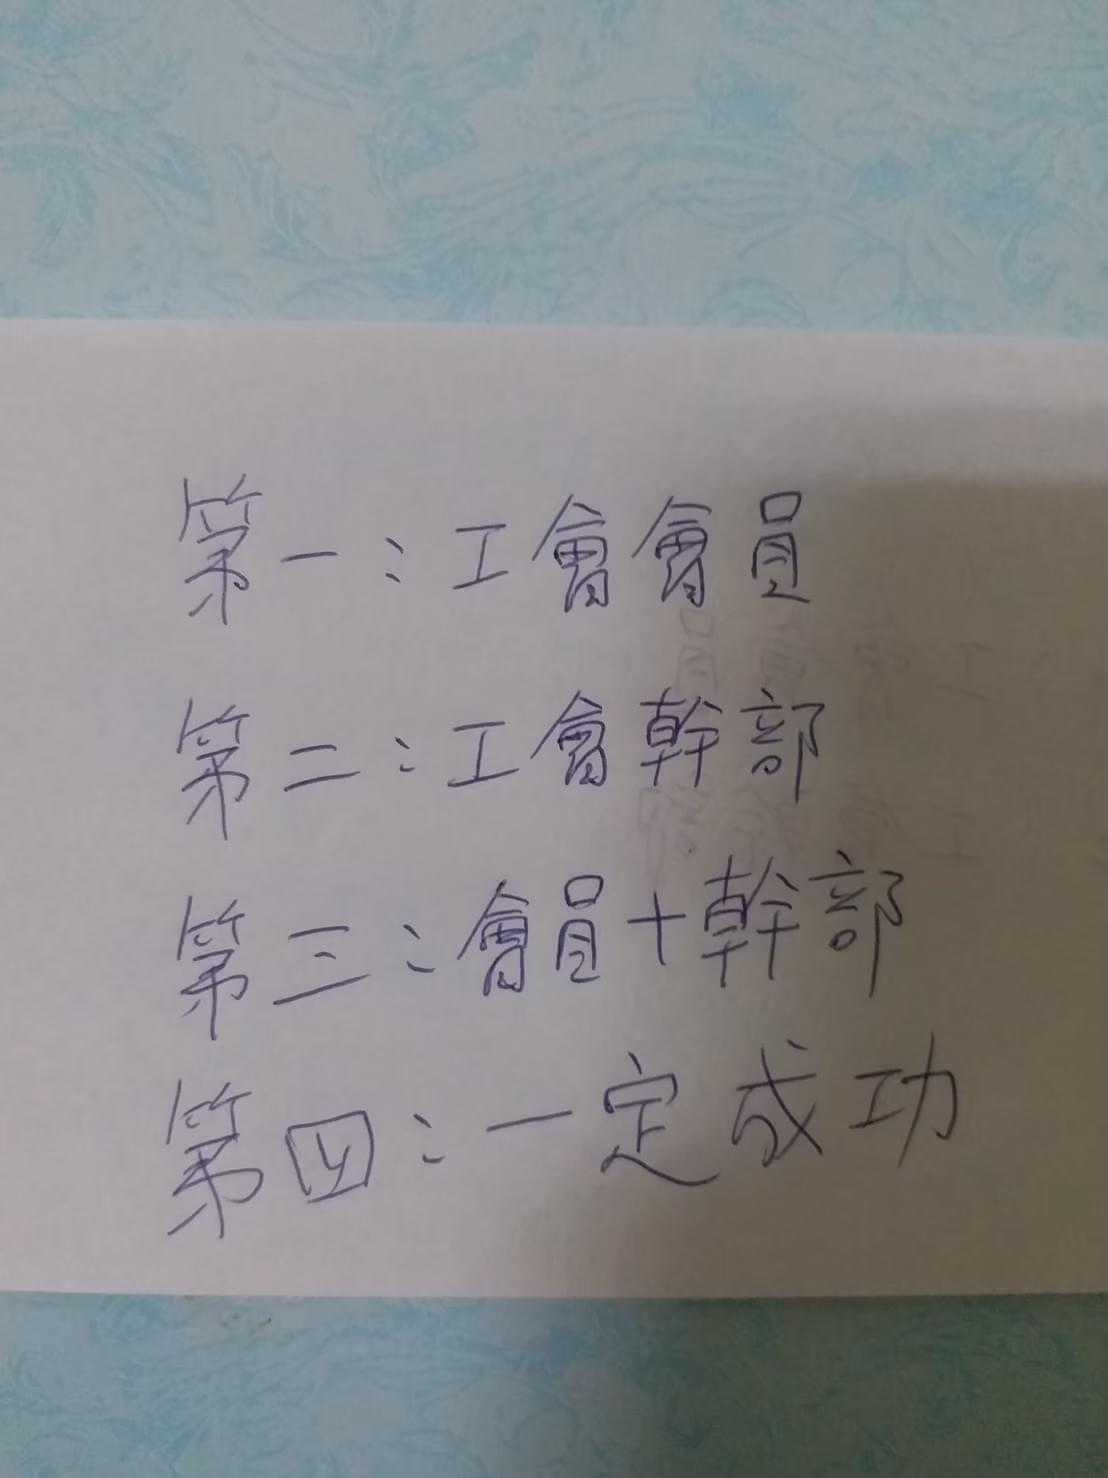 第一：工會會員
第二：工會幹部
第三：會員+幹部
第四：一定成功